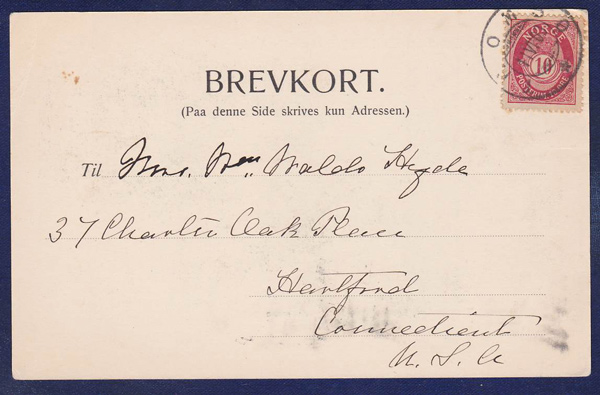 BREVKORT.
(Paa denne Side skrives kun Adressen.)
NORGE
10
Til Mrs. Wm. Waldo Hyde
37 Charter Oak Place
Hartford
Connecticut
U. S. A